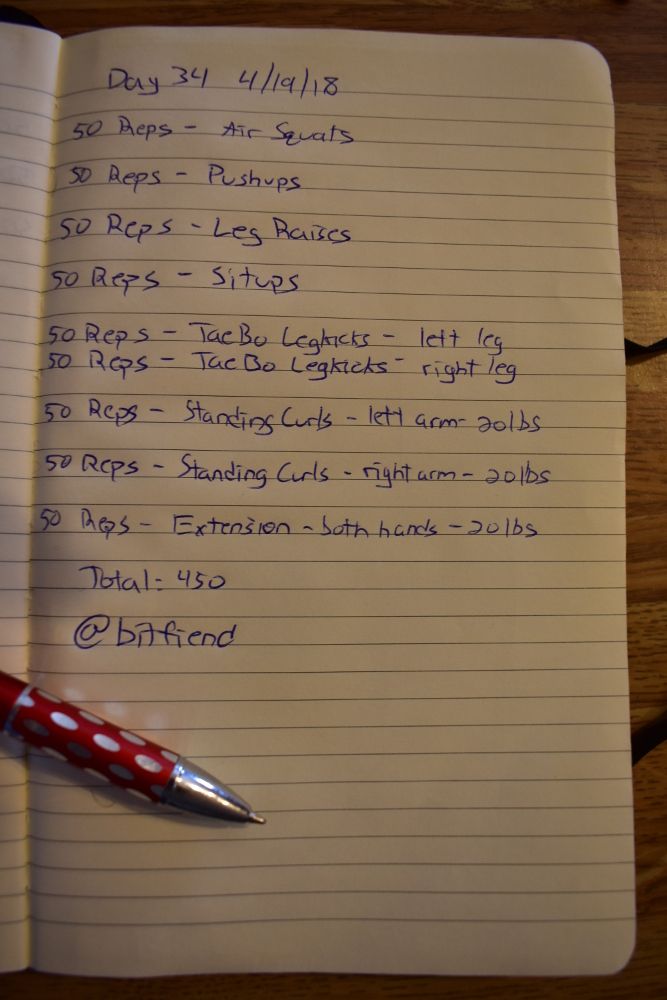 Day 34 4/19/18
50 Reps - Air Squats
50 Reps - Pushups
50 Reps - Leg Raises
50 Reps - Situps
50 Reps - TaeBo Legkicks - left leg
50 Reps - TaeBo Legkicks - right leg
50 Reps - Standing Curls - left arm - 20lbs
50 Reps - Standing Curls - right arm - 20lbs
50 Reps - Extension - both hands - 20lbs
Total: 450
@bitfiend